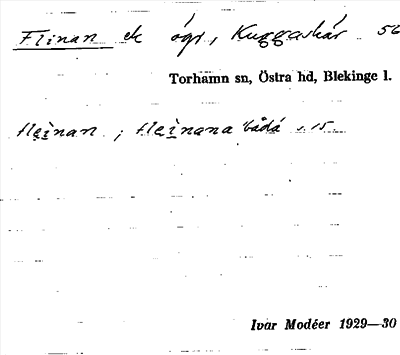 Flinan ek ögr, Kuggaskär 56
Torhamn sn, Östra hd, Blekinge l.
fleinan ; fleinana båda s. 15
Ivar Modéer 1929—30